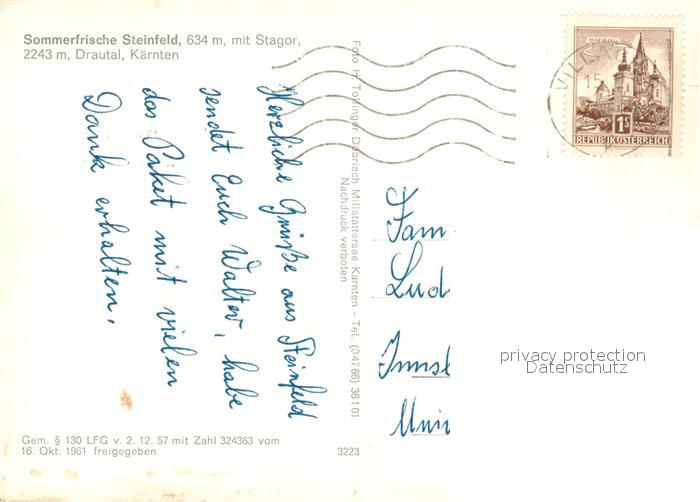 Sommerfrische Steinfeld, 634 m, mit Stagor,
2243 m, Drautal, Kärnten
Herzliche Grüße aus Steinfeld
sendet Euch Walter, habe
das Paket mit vielen
Dank erhalten.
Gem. § 130 LFG v. 2. 12. 57 mit Zahl 324363 vom
16. Okt. 1961 freigegeben
3223
Foto H. Tollinger Döbriach Millstättersee Kärnten - Tel. (04766) 36101
Nachdruck verboten
MARIAZELL
1S
REPUBLIK ÖSTERREICH
15
Fam
Lud
Inns
privacy protection
Datenschutz